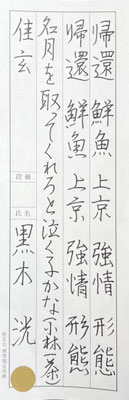 帰還 鮮魚 上京 強情 形態
帰還 鮮魚 上京 強情 形態
名月を取ってくれろと泣く子かな(小林一茶)
佳玄
段級
氏名
黒木 洸